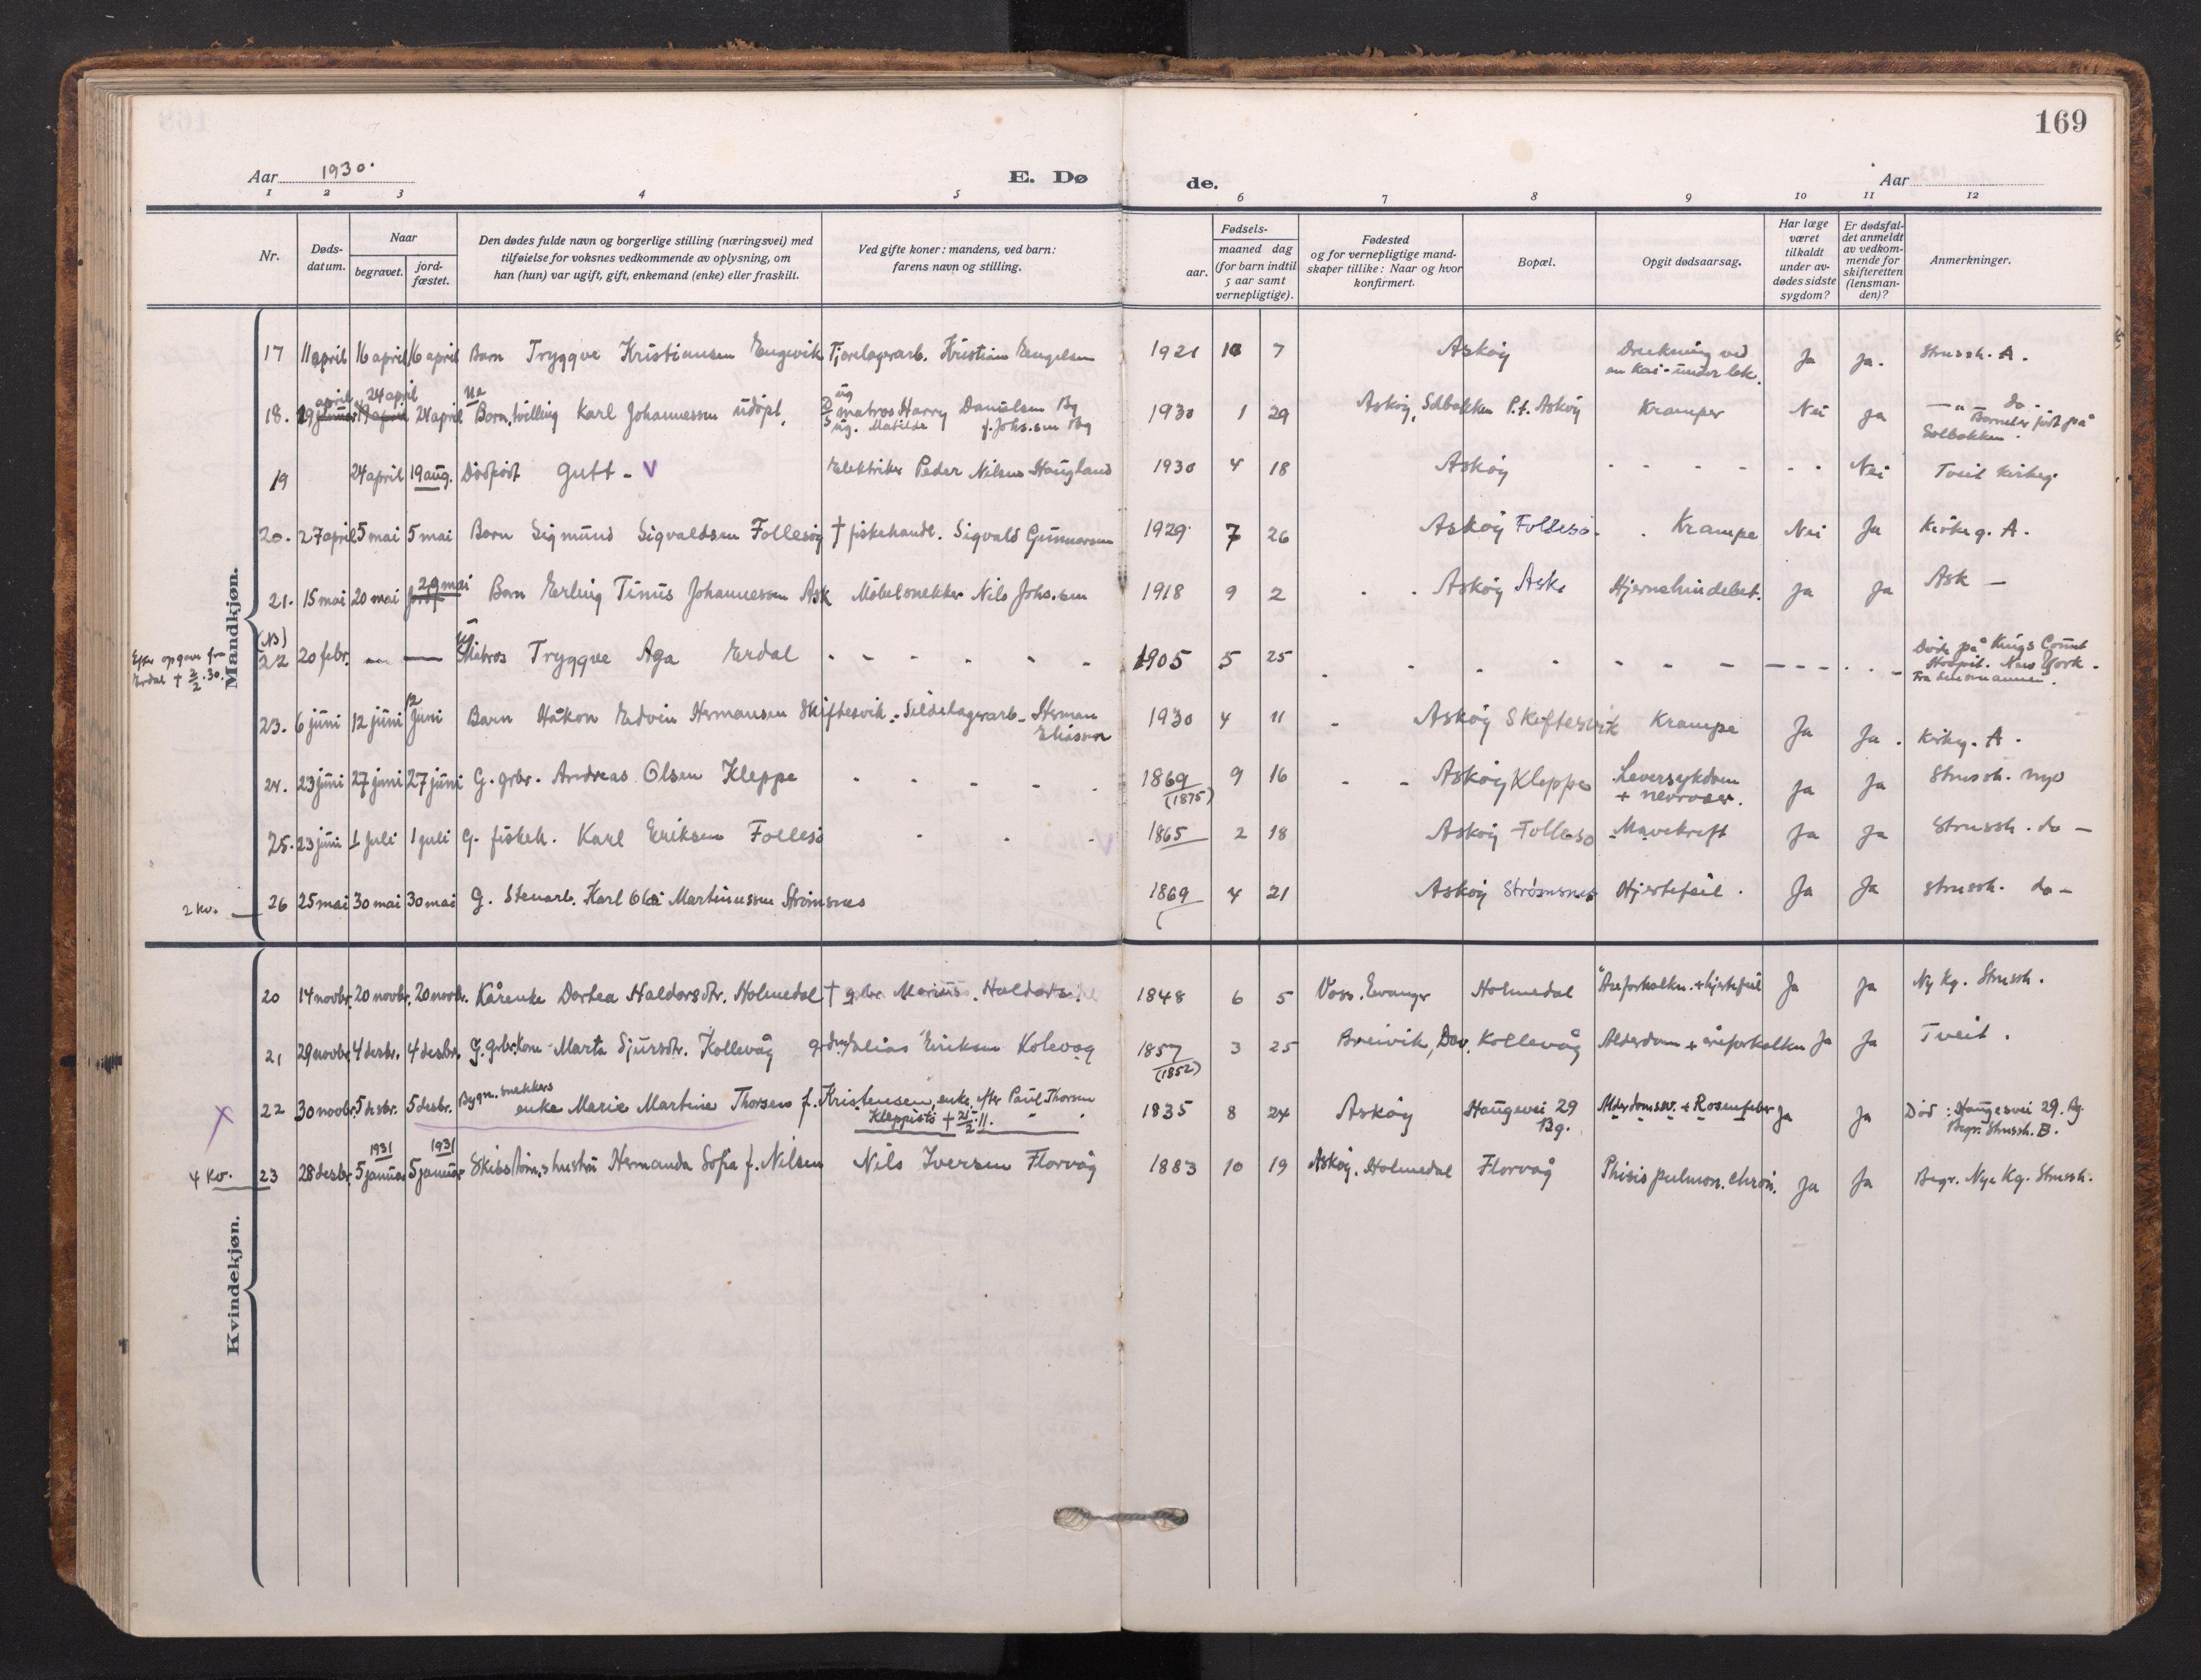 169
Aar 1930.
E. Dø de.
Aar
1 2 3 4 5 6 7 8 9 10 11 12
Nr.
Døds-
datum.
Naar
begravet.
jord-
fæstet.
Den dødes fulde navn og borgerlige stilling (næringsvei) med
tilføielse for voksnes vedkommende av oplysning, om
han (hun) var ugift, gift, enkemand (enke) eller fraskilt.
Ved gifte koner: mandens, ved barn:
farens navn og stilling.
Fødsels-
aar.
maaned dag
(for barn indtil
5 aar samt
vernepligtige).
Fødested
og for vernepligtige mand-
skaper tillike: Naar og hvor
konfirmert.
Bopæl.
Opgit dødsaarsag.
Har læge
været
tilkaldt
under av-
dødes sidste
sygdom?
Er dødsfal-
det anmeldt
av vedkom-
mende for
skifteretten
(lensman-
den)?
Anmerkninger.
Mandkjøn.
17 11 april 16 april 16 april Barn Tryggve Kristiansen Engevik Tjærelagerarb. Kristian Engelsen 1921 10 7 Askøy Drukning ved
en kai - under lek. Ja Ja. Strussh. A.
18. 19 april 24 april 24 april Barn, tvilling Karl Johannessen udöpt. ug matros Harry Danielsen By
ug. Matilde f. Johs.sen By 1930 1 29 Askøy, Solbakken P.t. Askøy Kramper Nei Ja — " — do -
Barnet er født på
Solbakken.
19 24 april 19 aug. Dödfödt gutt - V Elektriker Peder Nilsen Haugland 1930 4 18 Askøy - - - - - - Nei Tveit kirkeg.
20. 27 april 5 mai 5 mai Barn Sigmund Sigvaldsen Follesøy † fiskehandl. Sigvald Gunnarsen 1929 7 26 Askøy Follesö. Krampe Nei Ja Kirkeg. A.
21. 15 mai 20 mai 20 mai Barn Erling Tinus Johannesen Ask Möbelsnekker Nils Johs.sen 1918 9 2 Askøy Ask. Hjernehindebet. Ja Ja Ask —
Efter opgave fra
Erdal † 2/2 .30. (NB)
22 20 febr. — — Matros Tryggve Aga Erdal - - - - - 1905 5 25 - - - - - - Døde på Kings Count
Hospit. New York -
Fra lensmannen.
23. 6 juni 12 juni 12 Juni Barn Håkon Edvin Hermansen Skiftesvik. Sildelagerarb. Herman
Eliassen 1930 4 11 - Askøy Skiftesvik Krampe Ja Ja. Kirkg. A.
24. 23 juni 27 juni 27 juni G. grbr. Andreas Olsen Kleppe - - - - 1869
(1875) 9 16 - - Askøy Kleppe Leversykdom
+ nevroser. Ja Ja Strussh. nye
25. 23 juni 1 Juli 1 juli G. fiskeh. Karl Eriksen Follesö - - - V 1865 2 18 Askøy Folleso Mavekreft Ja Ja Strussh. do -
2 kv. 26 25 mai 30 mai 30 mai G. Stenarb. Karl Olai Martinussen Strömsnes 1869 4 21 Askøy Strömsnes Hjertefeil. Ja Ja Strussh. do -
Kvindekjøn.
20 14 novbr. 20 novbr. 20 novbr. Kårenke Dortea Haldorsdtr. Holmedal † gbr. Marius Haldors. 1848 6 5 Voss. Evanger Holmedal Åreforkalkn. + hjertefeil Ja Ja Ny Kg. Strussh.
21 29 novbr. 4 desbr. 4 desbr. G. grbr.kone Marta Sjursdtr. Kollevåg Elias Eriksen Kolevag 1857
(1852) 3 25 Breivik, Dav. Kollevåg Alderdom + åreforkalkn Ja Ja Tveit.
X 22 30 novbr. 5 desbr. 5 desbr. Bygn. snekkers
enke Marie Martine Thorsen f. Kristensen, enke efter Paul Thorsen
Kleppestö † 21/2 .11. 1835 8 24 Askøy Haugevei 29
Bg. Alderdomssv. + Rosenfeber Ja Ja Död: Haugesvei 29. Bg.
Begr. Strussh. B.
4 kv. 23 28 desbr. 1931
5 januar 1931
5 januar Skibstöm.s hustru Hermanda Sofia f. Nilsen Nils Iversen Florvåg 1883 10 19 Askøy. Holmedal Florvåg Phisis pulmon. chron. Ja Ja Begr. Nye Kg. Strussh.